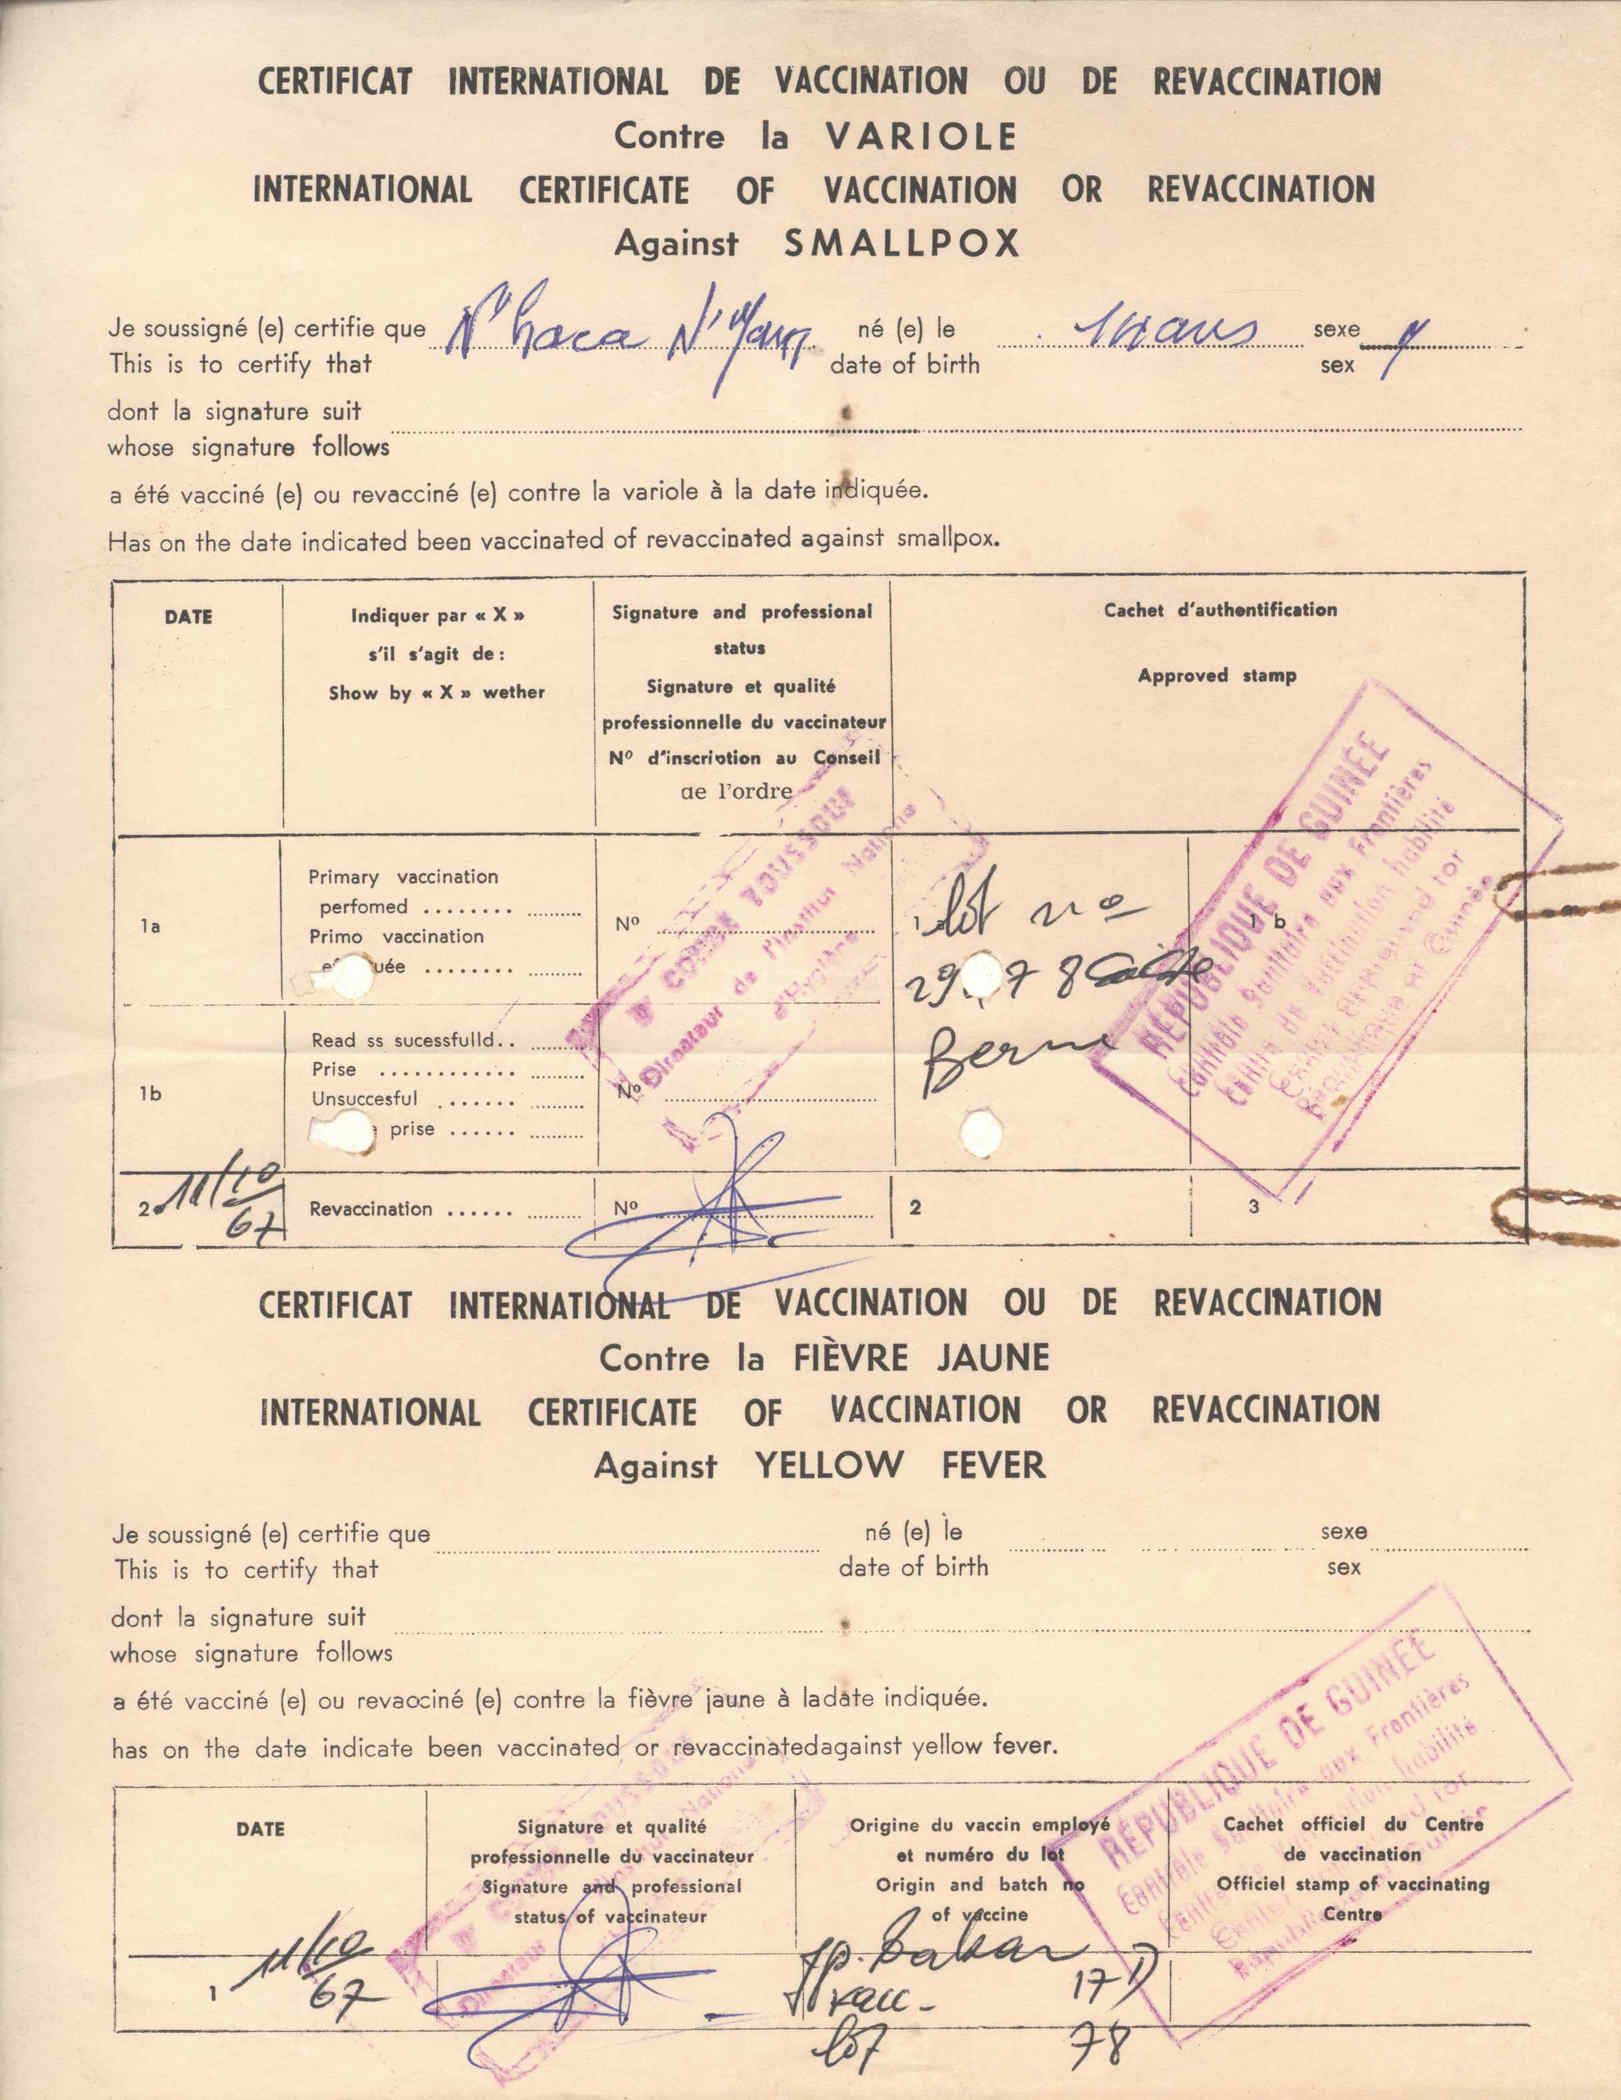 CERTIFICAT INTERNATIONAL DE VACCINATION OU DE REVACCINATION
Contre la VARIOLE
INTERNATIONAL CERTIFICATE OF VACCINATION OR REVACCINATION
Against SMALLPOX
Je soussigné (e) certifie que N'haca né (e) le sexe
This is to certify that date of birth sex
dont la signature suit
whose signature follows
a été vacciné (e) ou revacciné (e) contre la variole à la date indiquée.
Has on the date indicated been vaccinated of revaccinated against smallpox.
DATE
Indiquer par « X »
s'il s'agit de :
Show by « X » wether
Signature and professional
status
Signature et qualité
professionnelle du vaccinateur
Nº d'inscription au Conseil
de l'ordre
Cachet d'authentification
Approved stamp
1a
Primary vaccination
perfomed ........
Primo vaccination
uée ........
Nº
lot no
29 7 8
Berne
1 b
1b
Read ss sucessfulld..
Prise ............
Unsuccesful .......
prise ......
Nº
TOUSSOUF
Directeur de l'Institut Nationa
d'Hygiène
RÉPUBLIQUE DE GUINÉE
Contrôle Sanitaire aux Frontières
Centre de Vaccination habilité
2. 11/10/67
Revaccination ......
Nº
2
3
CERTIFICAT INTERNATIONAL DE VACCINATION OU DE REVACCINATION
Contre la FIÈVRE JAUNE
INTERNATIONAL CERTIFICATE OF VACCINATION OR REVACCINATION
Against YELLOW FEVER
Je soussigné (e) certifie que né (e) le sexe
This is to certify that date of birth sex
dont la signature suit
whose signature follows
a été vacciné (e) ou revacciné (e) contre la fièvre jaune à ladate indiquée.
has on the date indicate been vaccinated or revaccinatedagainst yellow fever.
DATE
Signature et qualité
professionnelle du vaccinateur
Signature and professional
status of vaccinateur
Origine du vaccin employé
et numéro du lot
Origin and batch no
of vaccine
Cachet officiel du Centre
de vaccination
Officiel stamp of vaccinating
Centre
RÉPUBLIQUE DE GUINÉE
Contrôle Sanitaire aux Frontières
1 11/10/67
Directeur
Dakar
17D
lot 78